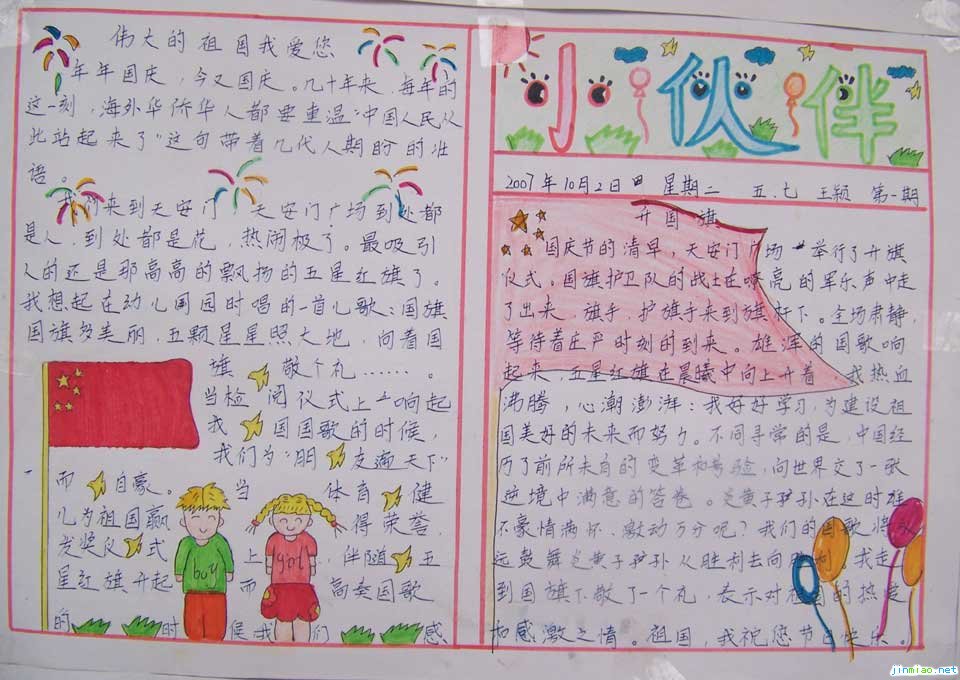 伟大的祖国我爱您
年年国庆，今又国庆。几十年来，每年的
这一刻，海外华侨华人都要重温“中国人民从
此站起来了”这句带着几代人期盼的
语。
我们来到天安门 天安门广场到处都
是人，到处都是花，热闹极了。最吸引
人的还是那高高的飘扬的五星红旗了
我想起在幼儿园时唱的一首儿歌：国旗
国旗多美丽，五颗星星照大地，向着国
旗 敬个礼……。
当检阅仪式上一响起
我国国歌的时候，
我们为“朋友遍天下”
而自豪。当体育健
儿为祖国赢得荣誉，
发奖仪式上，伴随五
星红旗升起而高奏国歌
的时候我们感
小伙伴
2007年10月2日 星期二 五.七 王颖 第一期
升国旗
国庆节的清早，天安门广场举行了升旗
仪式。国旗护卫队的战士在嘹亮的军乐声中走
了出来，旗手，护旗手来到旗杆下。全场肃静，
等待着庄严时刻的到来。雄浑的国歌响
起来，五星红旗在晨曦中向上升着 我热血
沸腾，心潮澎湃：我好好学习，为建设祖
国美好的未来而努力。不同寻常的是，中国经
历了前所未有的变革和考验，向世界交了一张
逆境中满意的答卷。炎黄子孙在这时谁
不豪情满怀、激动万分呢？我们的国歌将永
远鼓舞炎黄子孙从胜利去向胜利！我走
到国旗下敬了一个礼，表示对祖国的热爱
和感激之情。祖国，我祝您节日快乐。
boy
girl
jinmiao.net